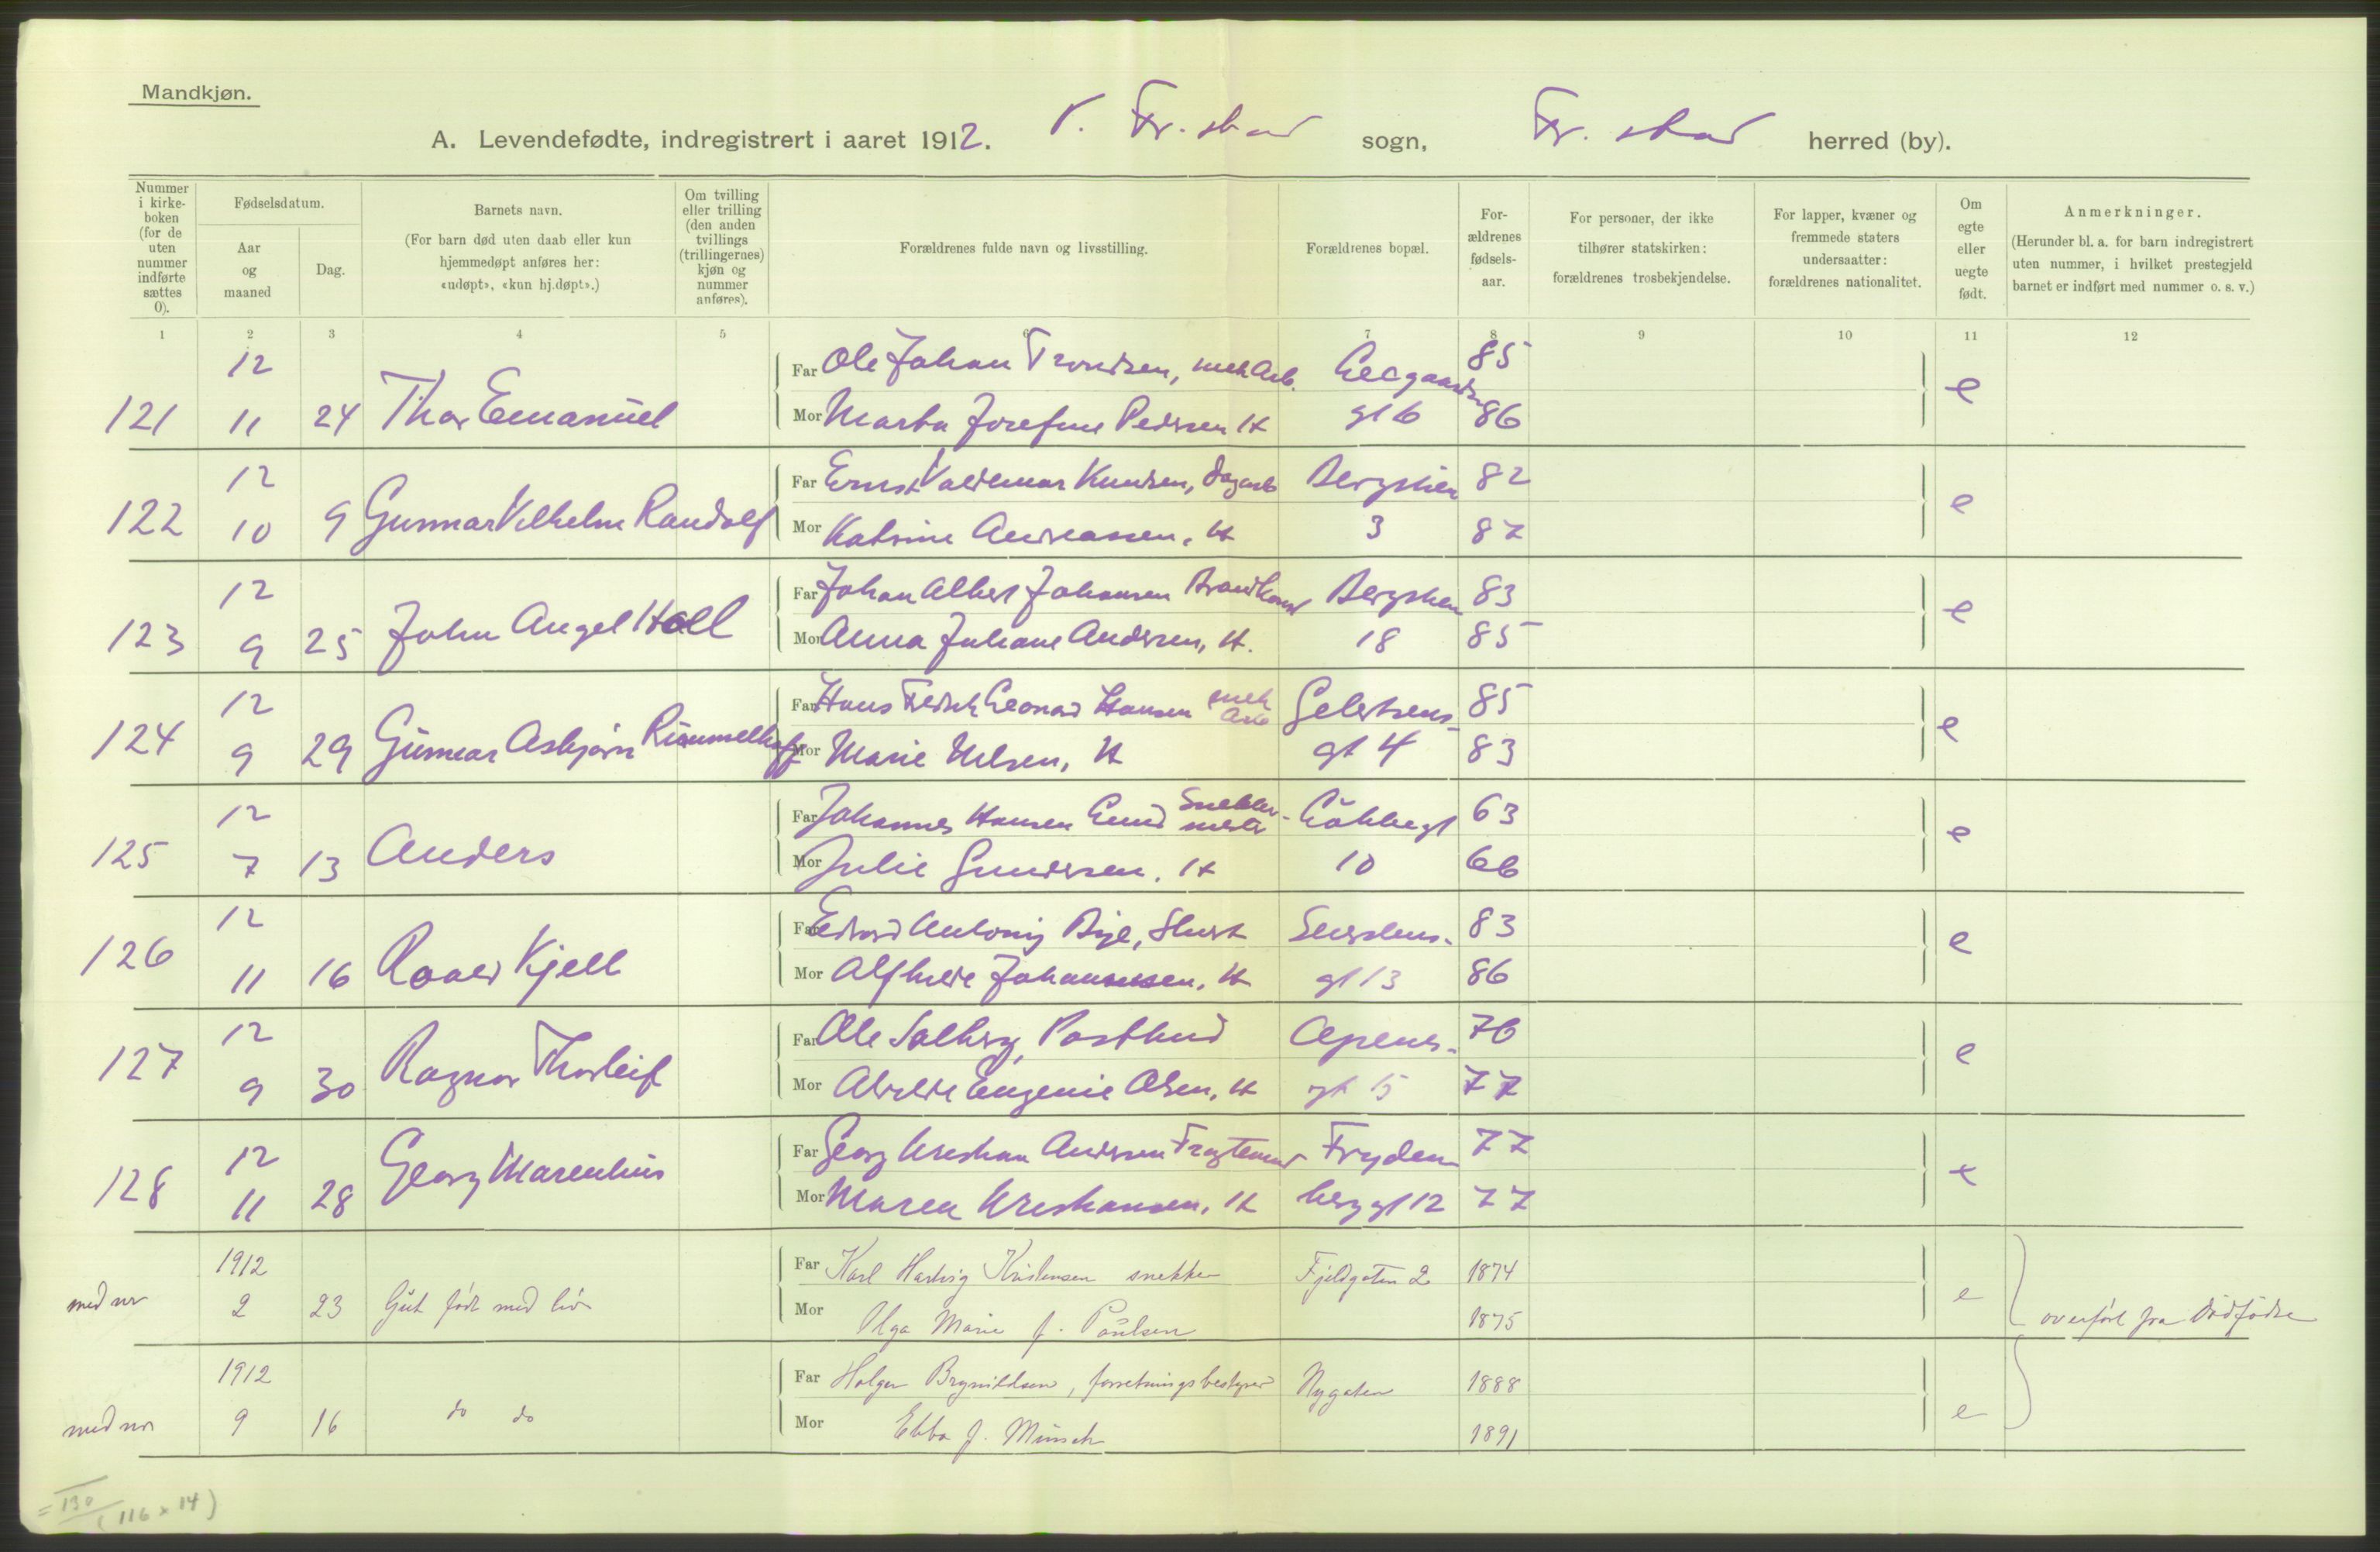 Mandkjøn.
A. Levendefødte, indregistrert i aaret 1912. V. Fr.stad sogn, Fr. stad herred (by).
Nummer i kirkeboken (for de uten nummer indførte sættes 0).
Fødselsdatum.
Aar og maaned
Dag.
Barnets navn.
(For barn død uten daab eller kun hjemmedøpt anføres her: «udøpt», «kun hj.døpt».)
Om tvilling eller trilling (den anden tvillings (trillingernes) kjøn og nummer anføres).
Forældrenes fulde navn og livsstilling.
Forældrenes bopæl.
Forældrenes fødselsaar.
For personer, der ikke tilhører statskirken: forældrenes trosbekjendelse.
For lapper, kvæner og fremmede staters undersaatter: forældrenes nationalitet.
Om egte eller uegte født.
Anmerkninger.
(Herunder bl. a. for barn indregistrert uten nummer, i hvilket prestegjeld barnet er indført med nummer o. s. v.)
1 2 3 4 5 6 7 8 9 10 11 12
12 Far Ole Johan Trondsen, mek Arb. 85
121 11 24 Thor Emanuel Mor Marta Josefine Pedersen H gt 6 86 e
12 Far Ernst Valdemar Knudsen, Dagarb Bergslien 82
122 10 9 Gunnar Vilhelm Randolf Mor Katrine Andreassen, H 3 87 e
12 Far Johan Albert Johansen Brandkonst Bergslien 83
123 9 25 John Angel Hall Mor Anna Juliane Andersen, H. 18 85 e
12 Far Hans Fredrik Leonard Hansen mek Arb Gelertsens- 85
124 9 29 Gunnar Asbjørn Rimmelhoff Mor Marie Nilsen, H gt 4 83 e
12 Far Johannes Hansen Lund Snekkermester 63
125 7 13 Anders Mor Julie Gundersen, H 10 66 e
12 Far Edvard Antonij Bye, 83
126 11 16 Roald Kjell Mor Alfhilde Johannesen, H gt 13 86 e
12 Far Ole Solberg, Postbud Apenes- 76
127 9 30 Ragnar Thorleif Mor Eugenie Olsen, H gt 15 77 e
12 Far Georg Kristian Andersen Fragtemand Fryden 77
128 11 28 Georg Marenhius Mor Maren Kristiansen, H berg gt 12 77 e
1912 Far Karl Hartvig Kristensen snekker Fjeldgaten 2 1874
med nr 2 23 Gut født med liv Mor Olga Marie f. Paulsen 1875 e overført fra dødfødte
1912 Far Holger Brynildsen, forretningsbestyrer Nygaten 1888
med nr 9 16 do do Mor Ebba f. Münsch 1891 e
= 130
(116 + 14)